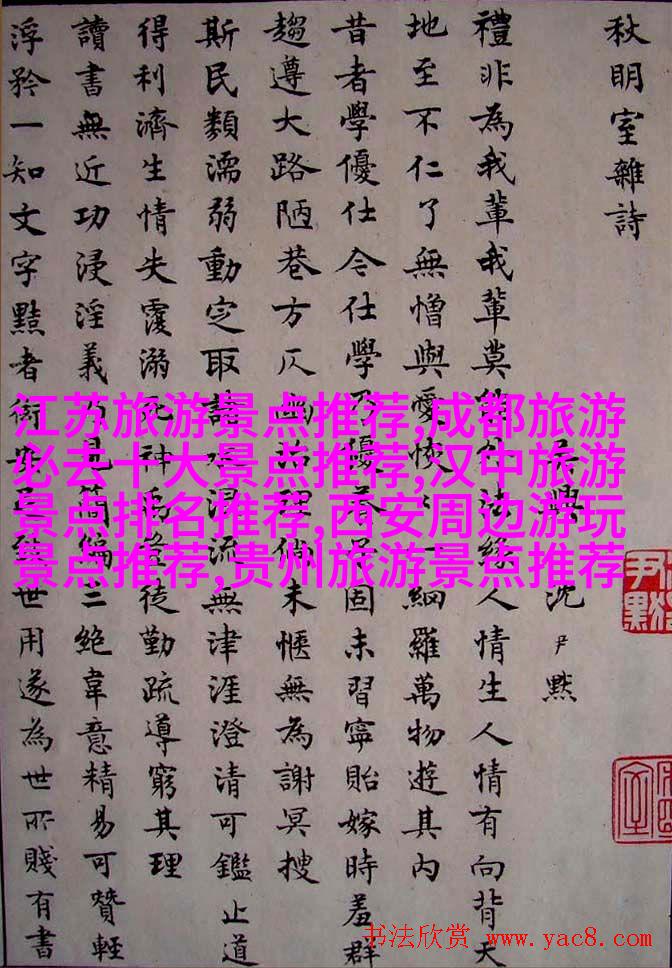 秋明室雜詩
吳興沈尹默
禮非為我輩我輩莫 外 緣人情生人情有向背天
地至不仁了無憎與愛 一網羅萬物遊其內
昔者學優仕今仕學 優 固未習寧貽嫁時羞群
趨遵大路陋巷方仄 治理倘未愜無為謝冥搜
斯民類濡弱動定取 水混流無津涯澄清可鑑止道
得利濟生情失覆溺死神禹豈徒勤疏導窮其理
讀書無近功浸淫義乃見簡編三絕韋意精易可贊輕
浮矜一知文字黠者 世用遂為世所賤有書
江苏旅游景点推荐,成都旅游
必去十大景点推荐,汉中旅游
景点排名推荐,西安周边游玩
景点推荐,贵州旅游景点推荐
尹默
书法欣赏 www.yac8.com